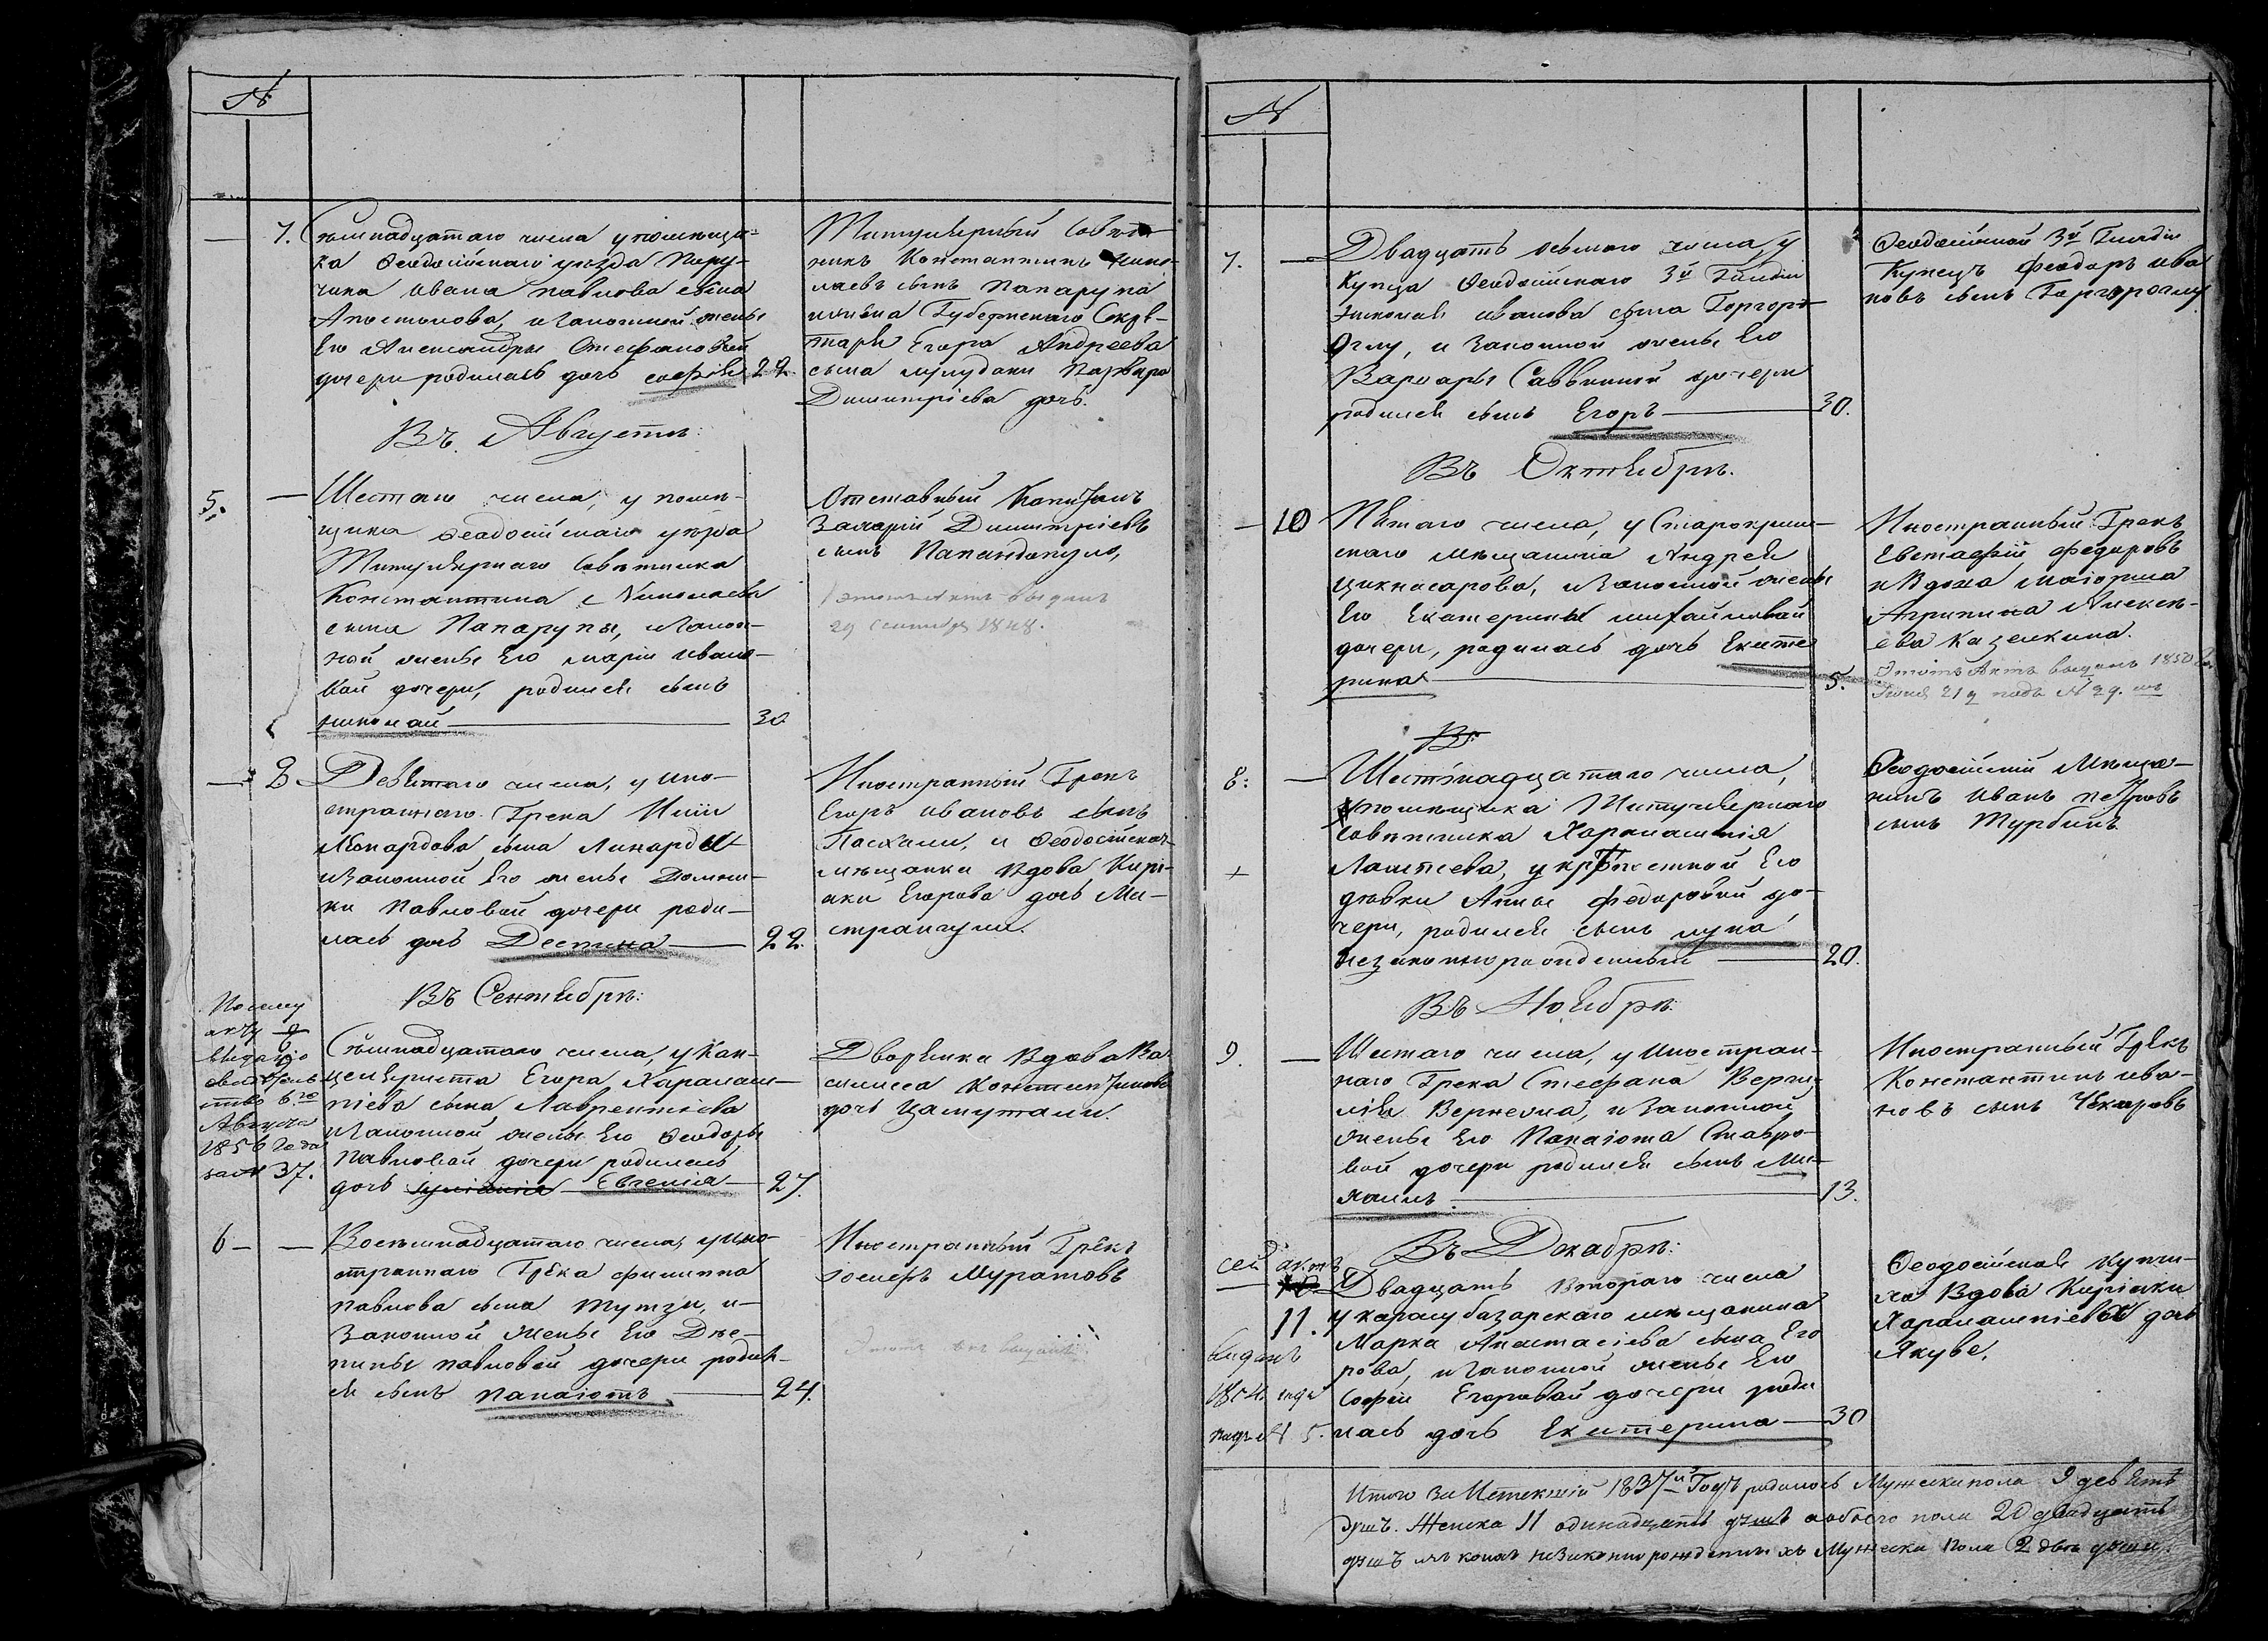 №
7. Сѣмнадцатаго числа у помѣщи=
ка Ѳеодосійскаго уѣзда Пору-
чика Ивана Павлова сына
Апостолова, и законной жены
Его Александры Стефановой
дочери родилась дочь Софія 22.
Титулярный Совѣт
никъ Константинъ Нико-
лаевъ сынъ Папарупа
Губернскаго Секре-
таря Егора Андреева
сына
Димитріева дочь.
Въ Августѣ:
5. — Шестаго числа, у помѣ-
щика Ѳеодосійскаго уѣзда
Титулярнаго Совѣтника
Константина Николаева
сына Папарупы, и закон-
ной жены Его Маріи Ивано-
вой дочери, родился сынъ
Николай — 30
Отставный Капитанъ
Захарій Димитріевъ
сынъ Папандопуло,
выданъ
29 Сентября 1848.
— 8 Девятаго числа, у Ино-
страннаго Грека Иліи
Леонардова сына Линарды
и законной Его жены Домни-
ки Павловой дочери роди-
лась дочь Деспина — 22.
Иностранный Грекъ
Егоръ Ивановъ сынъ
Пасхали, и Ѳеодосійская
мѣщанка Вдова Кирі-
аки Егорова дочь Ми-
странгули.
Въ Сентябрѣ:
По сему
акту 9
выдано
свидѣтель
ство 6го
Августа
1856 года
за № 37.
Сѣмнадцатаго числа, у Кан-
целяриста Егора Харалам-
піева сына Лаврентіева
и законной жены Его Ѳеодоры
Павловой дочери родилась
дочь Евгенія — 27.
Дворянка Вдова Ва
силиса Константинова
дочь Цамутали.
6 — — Восѣмнадцатаго числа, у Ино-
страннаго Грека Филиппа
Павлова сына Тутзи, и
Законной жены Его Дес-
пины Павловой дочери родил-
ся сынъ Панаіотъ — 24.
Иностранный Грекъ
Іосифъ Муратовъ
№
7. — Двадцать осьмаго числа, у
Купца Ѳеодосійскаго 3й Гильдіи
Николая Иванова сына Горгоро
Оглу, и Законной жены Его
Варвары Саввиной дочери
родился сынъ Егоръ — 30.
Ѳеодосійской 3й Гильдіи
Купецъ Феодоръ Ива
новъ сынъ Горгороглу
Въ Октябрѣ.
— 10 Пятаго числа, у Старокрым-
скаго мѣщанина Андрея
Цикносарова, и Законной жены
Его Екатерины Михайловой
дочери, родилась дочь Екате
рина — 5.
Иностранный Грекъ
Евстафій Федоровъ
и Вдова Маіорша
Агрипина Алексѣ-
ева Казелкина.
Этотъ Актъ выданъ 1850 го
Іюня 21 д подъ № 29.
Въ
8: — Шестнадцатаго числа,
у помѣщика Титулярнаго
совѣтника Харалампія
Лампсева, у крѣпостной Его
дѣвки Анны Федоровой до-
чери, родился сынъ Лука
незаконнорожденный — 20.
+
Ѳеодосійскій Мѣща-
нинъ Иванъ Петровъ
сынъ Турбинъ
Въ Ноябрѣ:
9. — Шестаго числа, у Иностран-
наго Грека Стефана Верги-
лія Вернеола, и Законной
жены Его Панаіота Ставро-
вой дочери родился сынъ Ми-
хаилъ. — 13.
Иностранный Грекъ
Константинъ Ива-
новъ сынъ Чекаровъ
Въ Декабрѣ:
сей актъ
11.
выданъ
1854 года
подъ № 5.
Двадцать втораго числа
у карасубазарскаго мѣщанина
Марка Анастасіева сына Его
рова, и законной жены Его
Софіи Егоровой дочери роди
лась дочь Екатерина — 30
Ѳеодосійская купчи-
ха Вдова Киріаки
Харалампіева дочь
Якуве.
Итого за Истекшій 1837й Годъ родилось Мужеска пола 9 девять
душъ. Женска 11 одинадцать душъ а обоего пола 20 двадцать
душъ изъ коихъ незаконнорожденныхъ Мужеска пола 2 двѣ души.